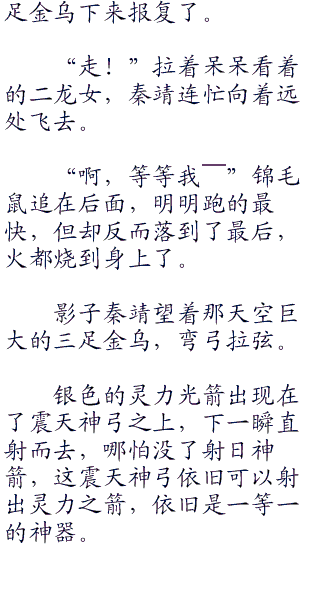 足金乌下来报复了。
“走！”拉着呆呆看着
的二龙女，秦靖连忙向着远
处飞去。
“啊，等等我￣”锦毛
鼠追在后面，明明跑的最
快，但却反而落到了最后，
火都烧到身上了。
影子秦靖望着那天空巨
大的三足金乌，弯弓拉弦。
银色的灵力光箭出现在
了震天神弓之上，下一瞬直
射而去，哪怕没了射日神
箭，这震天神弓依旧可以射
出灵力之箭，依旧是一等一
的神器。